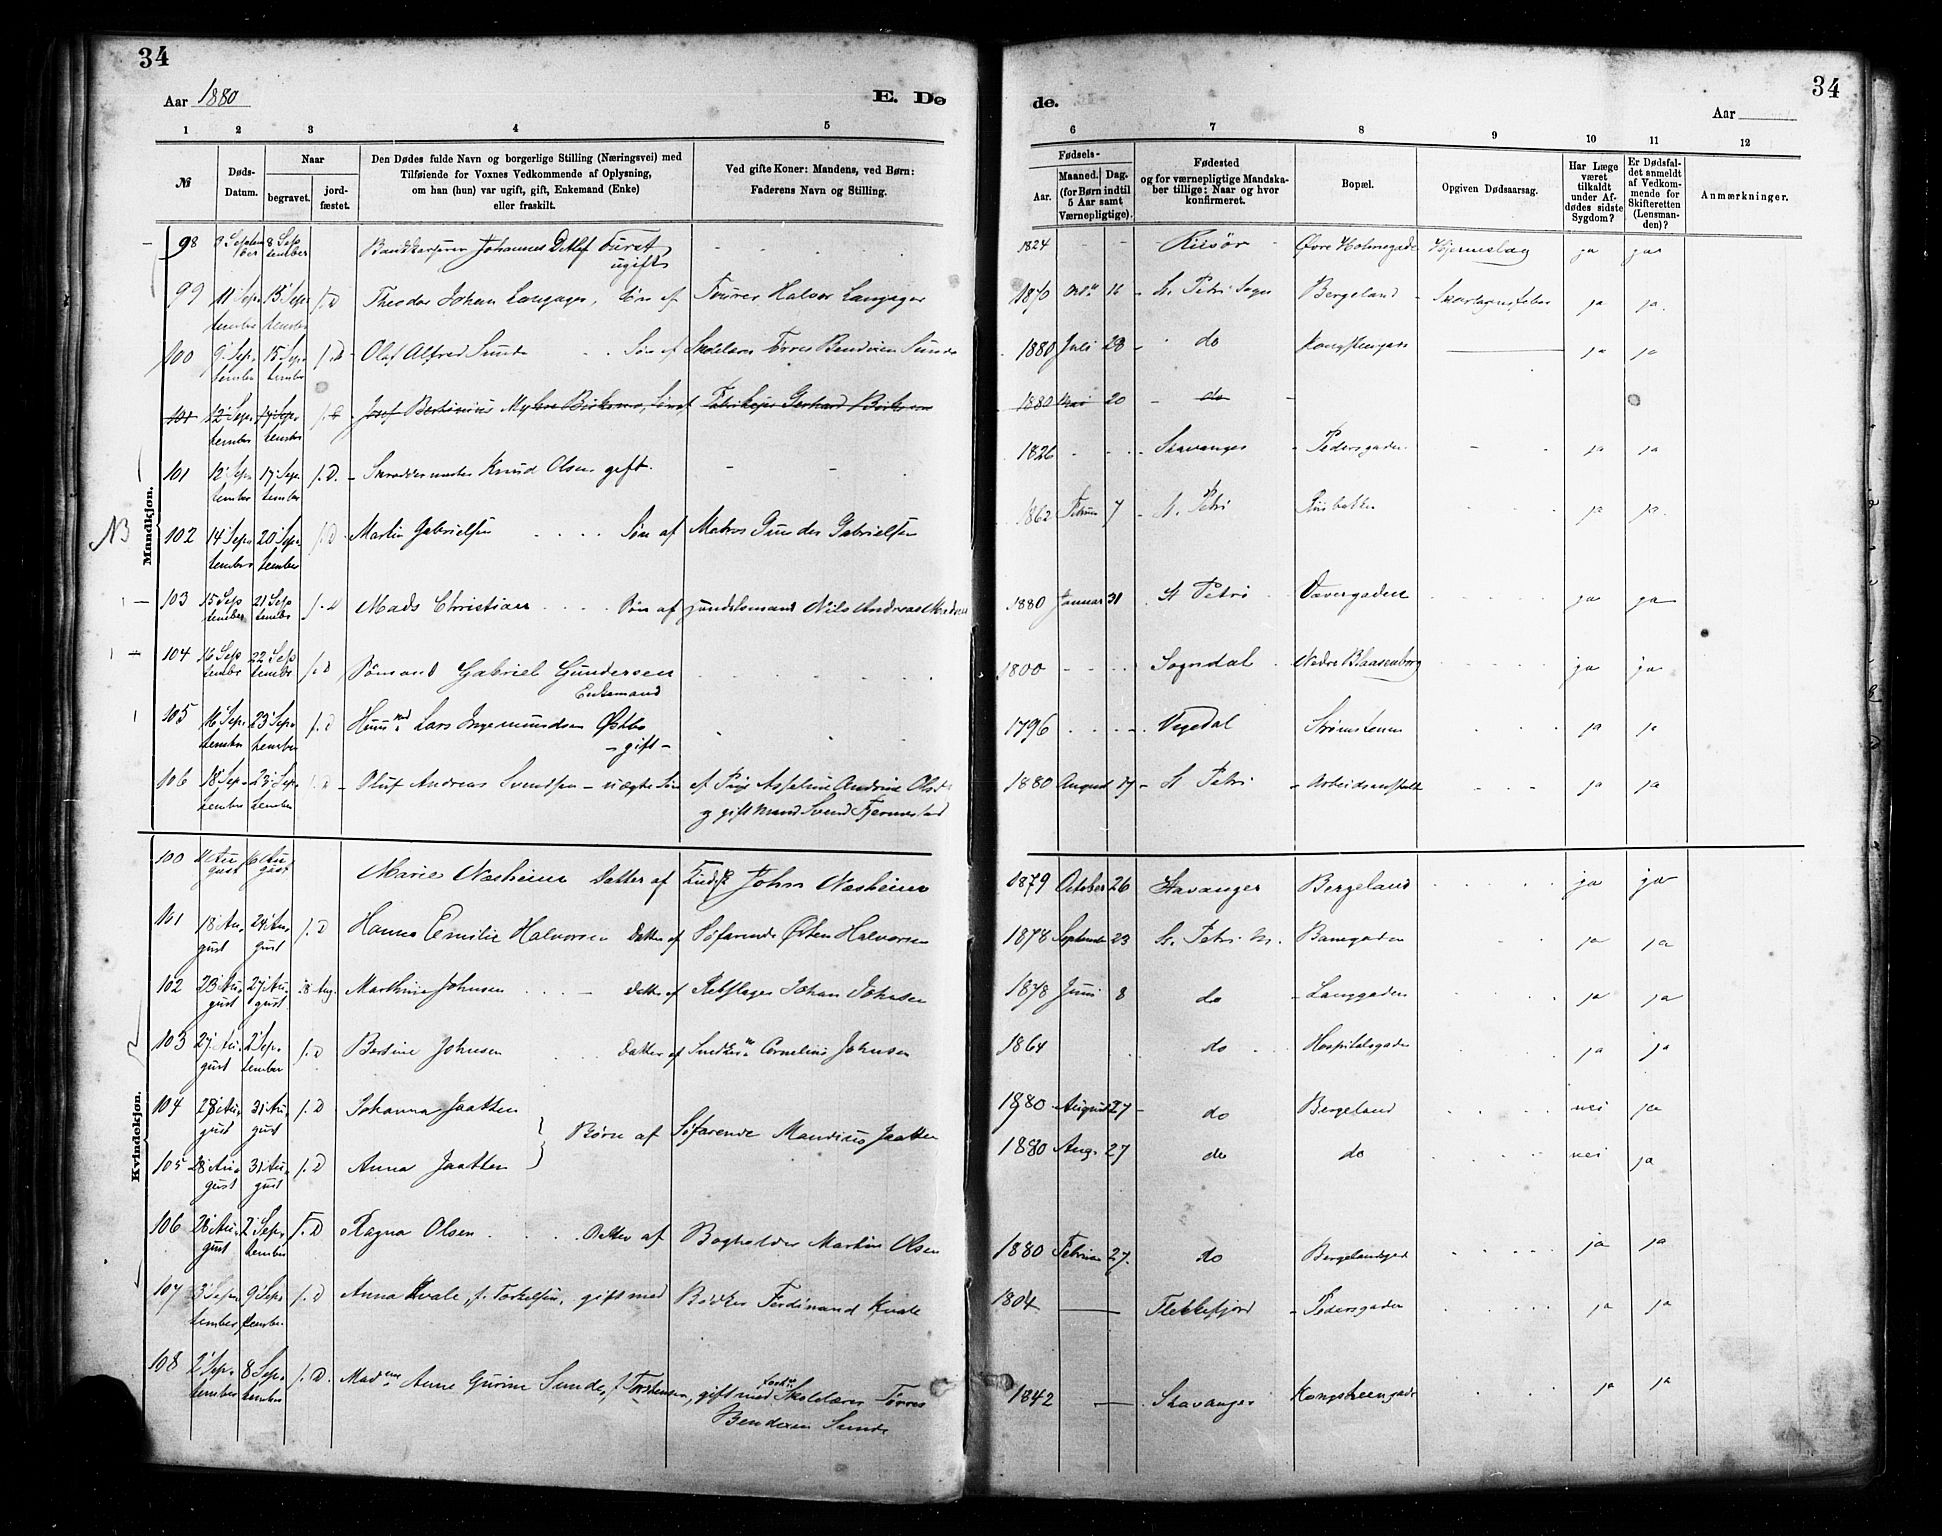 34
Aar 1880
E. Dø
1 2 3 4 5
№
Døds-Datum.
Naar
begravet.
jordfæstet.
Den Dødes fulde Navn og borgerlige Stilling (Næringsvei) med
Tilføiende for Voxnes Vedkommende af Oplysning,
om han (hun) var ugift, gift, Enkemand (Enke)
eller fraskilt.
Ved gifte Koner: Mandens, ved Børn:
Faderens Navn og Stilling.
34
de.
Aar
6 7 8 9 10 11 12
Fødsels-
Aar.
Maaned. Dag.
(for Børn indtil
5 Aar samt
Værnepligtige).
Fødested
og for værnepligtige Mandska-
ber tillige: Naar og hvor
konfirmeret.
Bopæl.
Opgiven Dødsaarsag.
Har Læge
været
tilkaldt
under Af-
dødes sidste
Sygdom?
Er Dødsfal-
det anmeldt
af Vedkom-
mende for
Skifteretten
(Lensman-
den)?
Anmærkninger.
Mandkjøn.
NB
98 9 September 8 September Johannes Detlef Furst ugift 1824 Riisör Øvre Holmegade Hjerneslag ja ja
99 11 September 13 September f. D Theodor Johan Langager, Søn af Tourer Halvor Langager 1870 16 St. Petri Sogn Bergeland Skarlagensfeber ja ja
100 9 September 15 September f. D Olaf Alfred Sunde Søn af Skolelærer Tørres Bendixen Sunde 1880 Juli 28 do ja ja
101 12 September 17 September Josef Bertinius Søn af Gerhard 1880 Mai 20 do
101 12 September 17 September f. D. Skræddermester Knud Olsen gift. 1826 Stavanger Pedersgaden ja ja
102 14 September 20 September f. D Martin Gabrielsen Søn af Matros Gunder Gabrielsen 1862 Februar 7 St. Petri ja ja
103 15 September 21 September f. D Mads Christian Søn af Nils Andreas 1880 Januar 31 St Petri Vævergaden ja ja
104 16 September 22 September f. D Sømand Gabriel Gundersen Enkemand 1800 Sogndal Nedre Blaasenborg ja ja
105 16 September 23 September f. D Huusmd Lars Ingemundsen Østbø - gift - 1796 Strømsteen ja ja
106 18 September 23 September Oluf Andreas Svendsen - uægte Søn af Pige Asseline Andrine
og gift Mand Svend Fjermestad 1880 August 17 St Petri Arbeidsanstalt ja ja
Kvindekjøn.
100 11 August 16 August Marie Næsheim Datter af John Næsheim 1879 October 26 Stavanger Bergeland ja ja
101 18 August 24 August f. D Hanna Emilie Halvorsen Datter af Søfarende Østen Halvorsen 1878 September 23 St. Petri M. Banegaden ja ja
102 23 August 27 August 28 Aug. Marthine Johnsen Datter af Rebslager Johan Johnsen 1878 Juni 8 do Langgaden ja ja
103 27 August 2 September f. D Bertine Johnsen Datter af Snedker Cornelius Johnsen 1864 do Hospitalsgaden ja ja
104 28 August 31 August f. D Johanna Jaatten 1880 August 27 do Bergeland nei ja
Børn af Søfarende Mandius Jaatten
105 28 August 31 August f. D Anna Jaatten 1880 Aug. 27 do do nei ja
106 28 August 2 September f. D Ragna Olsen Datter af Bogholder Martin Olsen 1880 Februar 27. do Bergelandsgad ja ja
107 3 September 9 September f. D Anna Kvale, f. Torkelsen, gift med Bødker Ferdinand Kvale 1804 Flekkefjord Pedersgaden ja ja
108 2 September 8 September f. D. Madme Anne Gurine Sunde, f. Torstensen, gift med Skolelærer Tørres
Bendixen Sunde 1842 Stavanger Kongsteengade ja ja